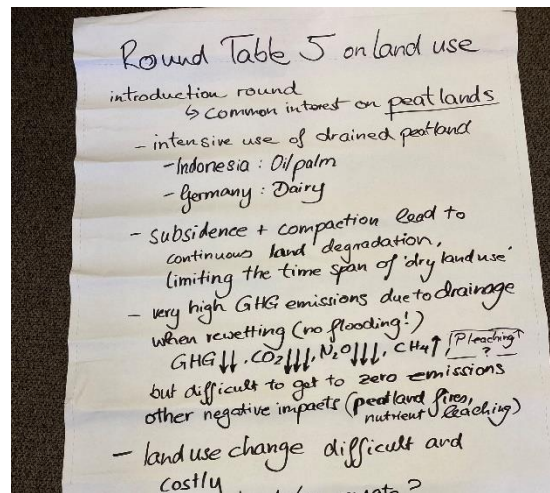 Round Table 5 on land use
introduction round
↳ common interest on peatlands
- intensive use of drained peatland
- Indonesia : Oil palm
- Germany : Dairy
- subsidence + compaction lead to
continuous land degradation,
limiting the time span of 'dry land use'
- very high GHG emissions due to drainage
when rewetting (no flooding!)
GHG↓↓, CO2↓↓↓, N2O↓↓↓, CH4↑ P leaching↑ ?
but difficult to get to zero emissions
other negative impacts (peatland fires,
nutrient leaching)
- land use change difficult and
costly